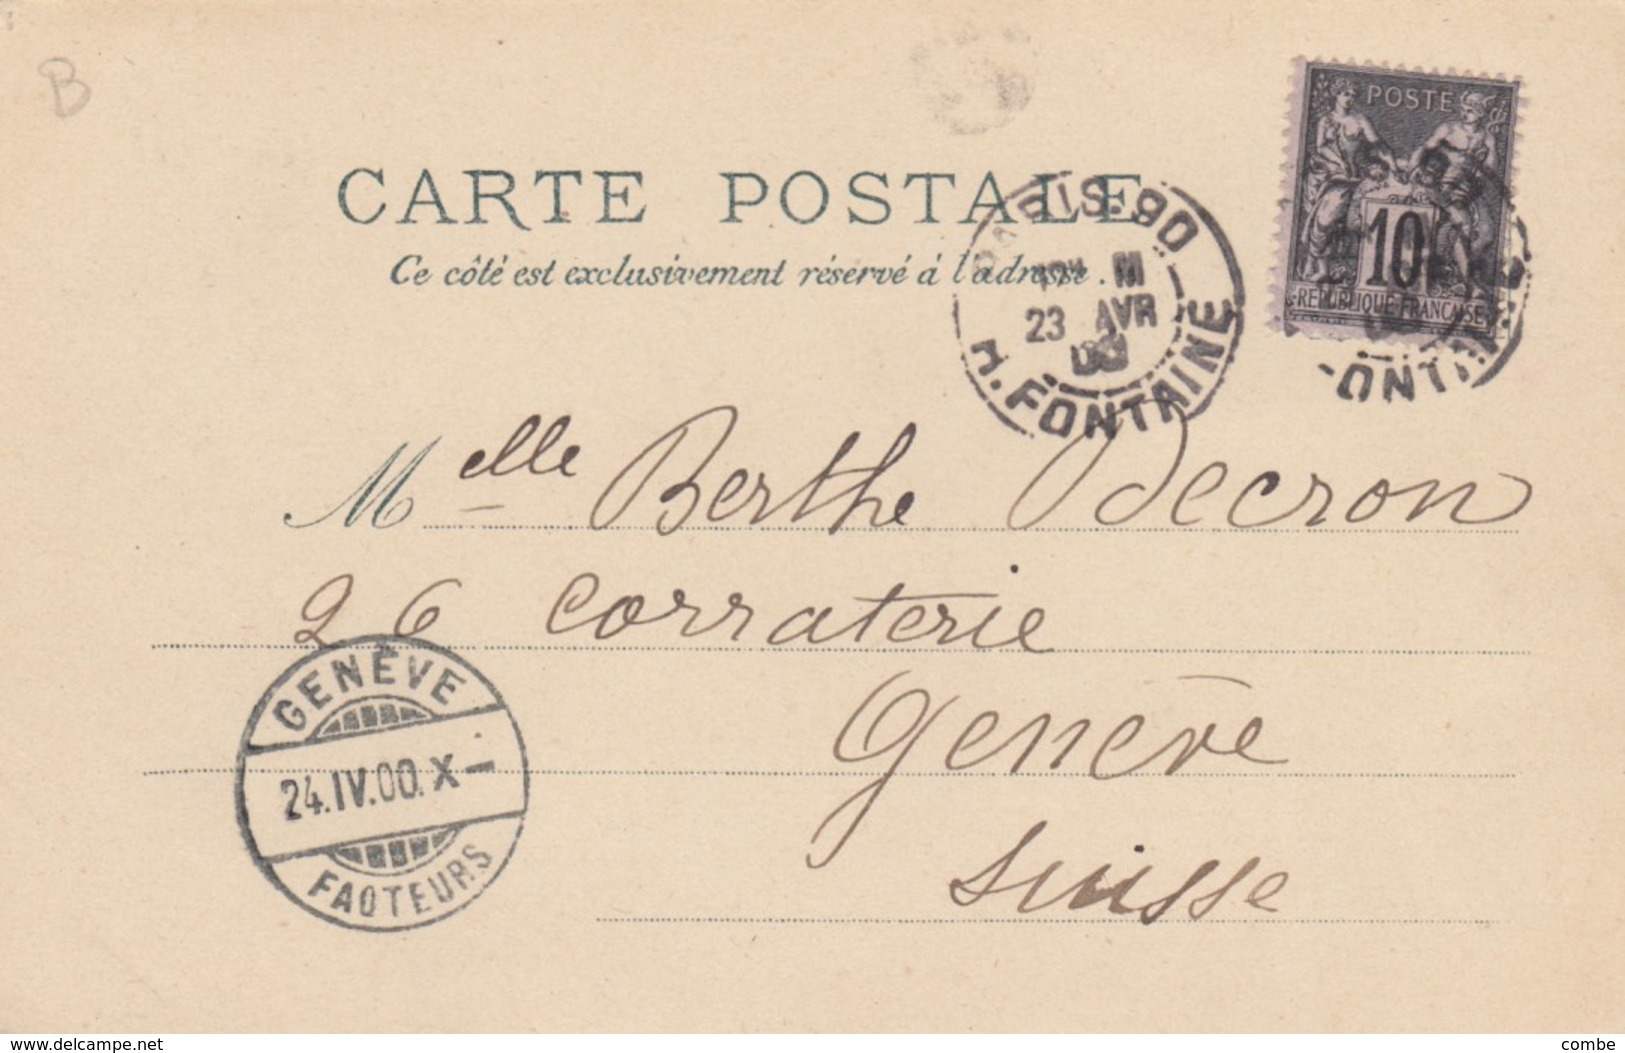 B
POSTE
10
REPUBLIQUE FRANCAISE
CARTE POSTALE
Ce côté est exclusivement réservé à l'adresse.
PARIS. 90
III
23 AVR
00
R. FONTAINE
Melle Berthe Decron
26 Corraterie
Genève
Suisse
GENÈVE
24.IV.00.X-
FACTEURS
www.delcampe.net
combe